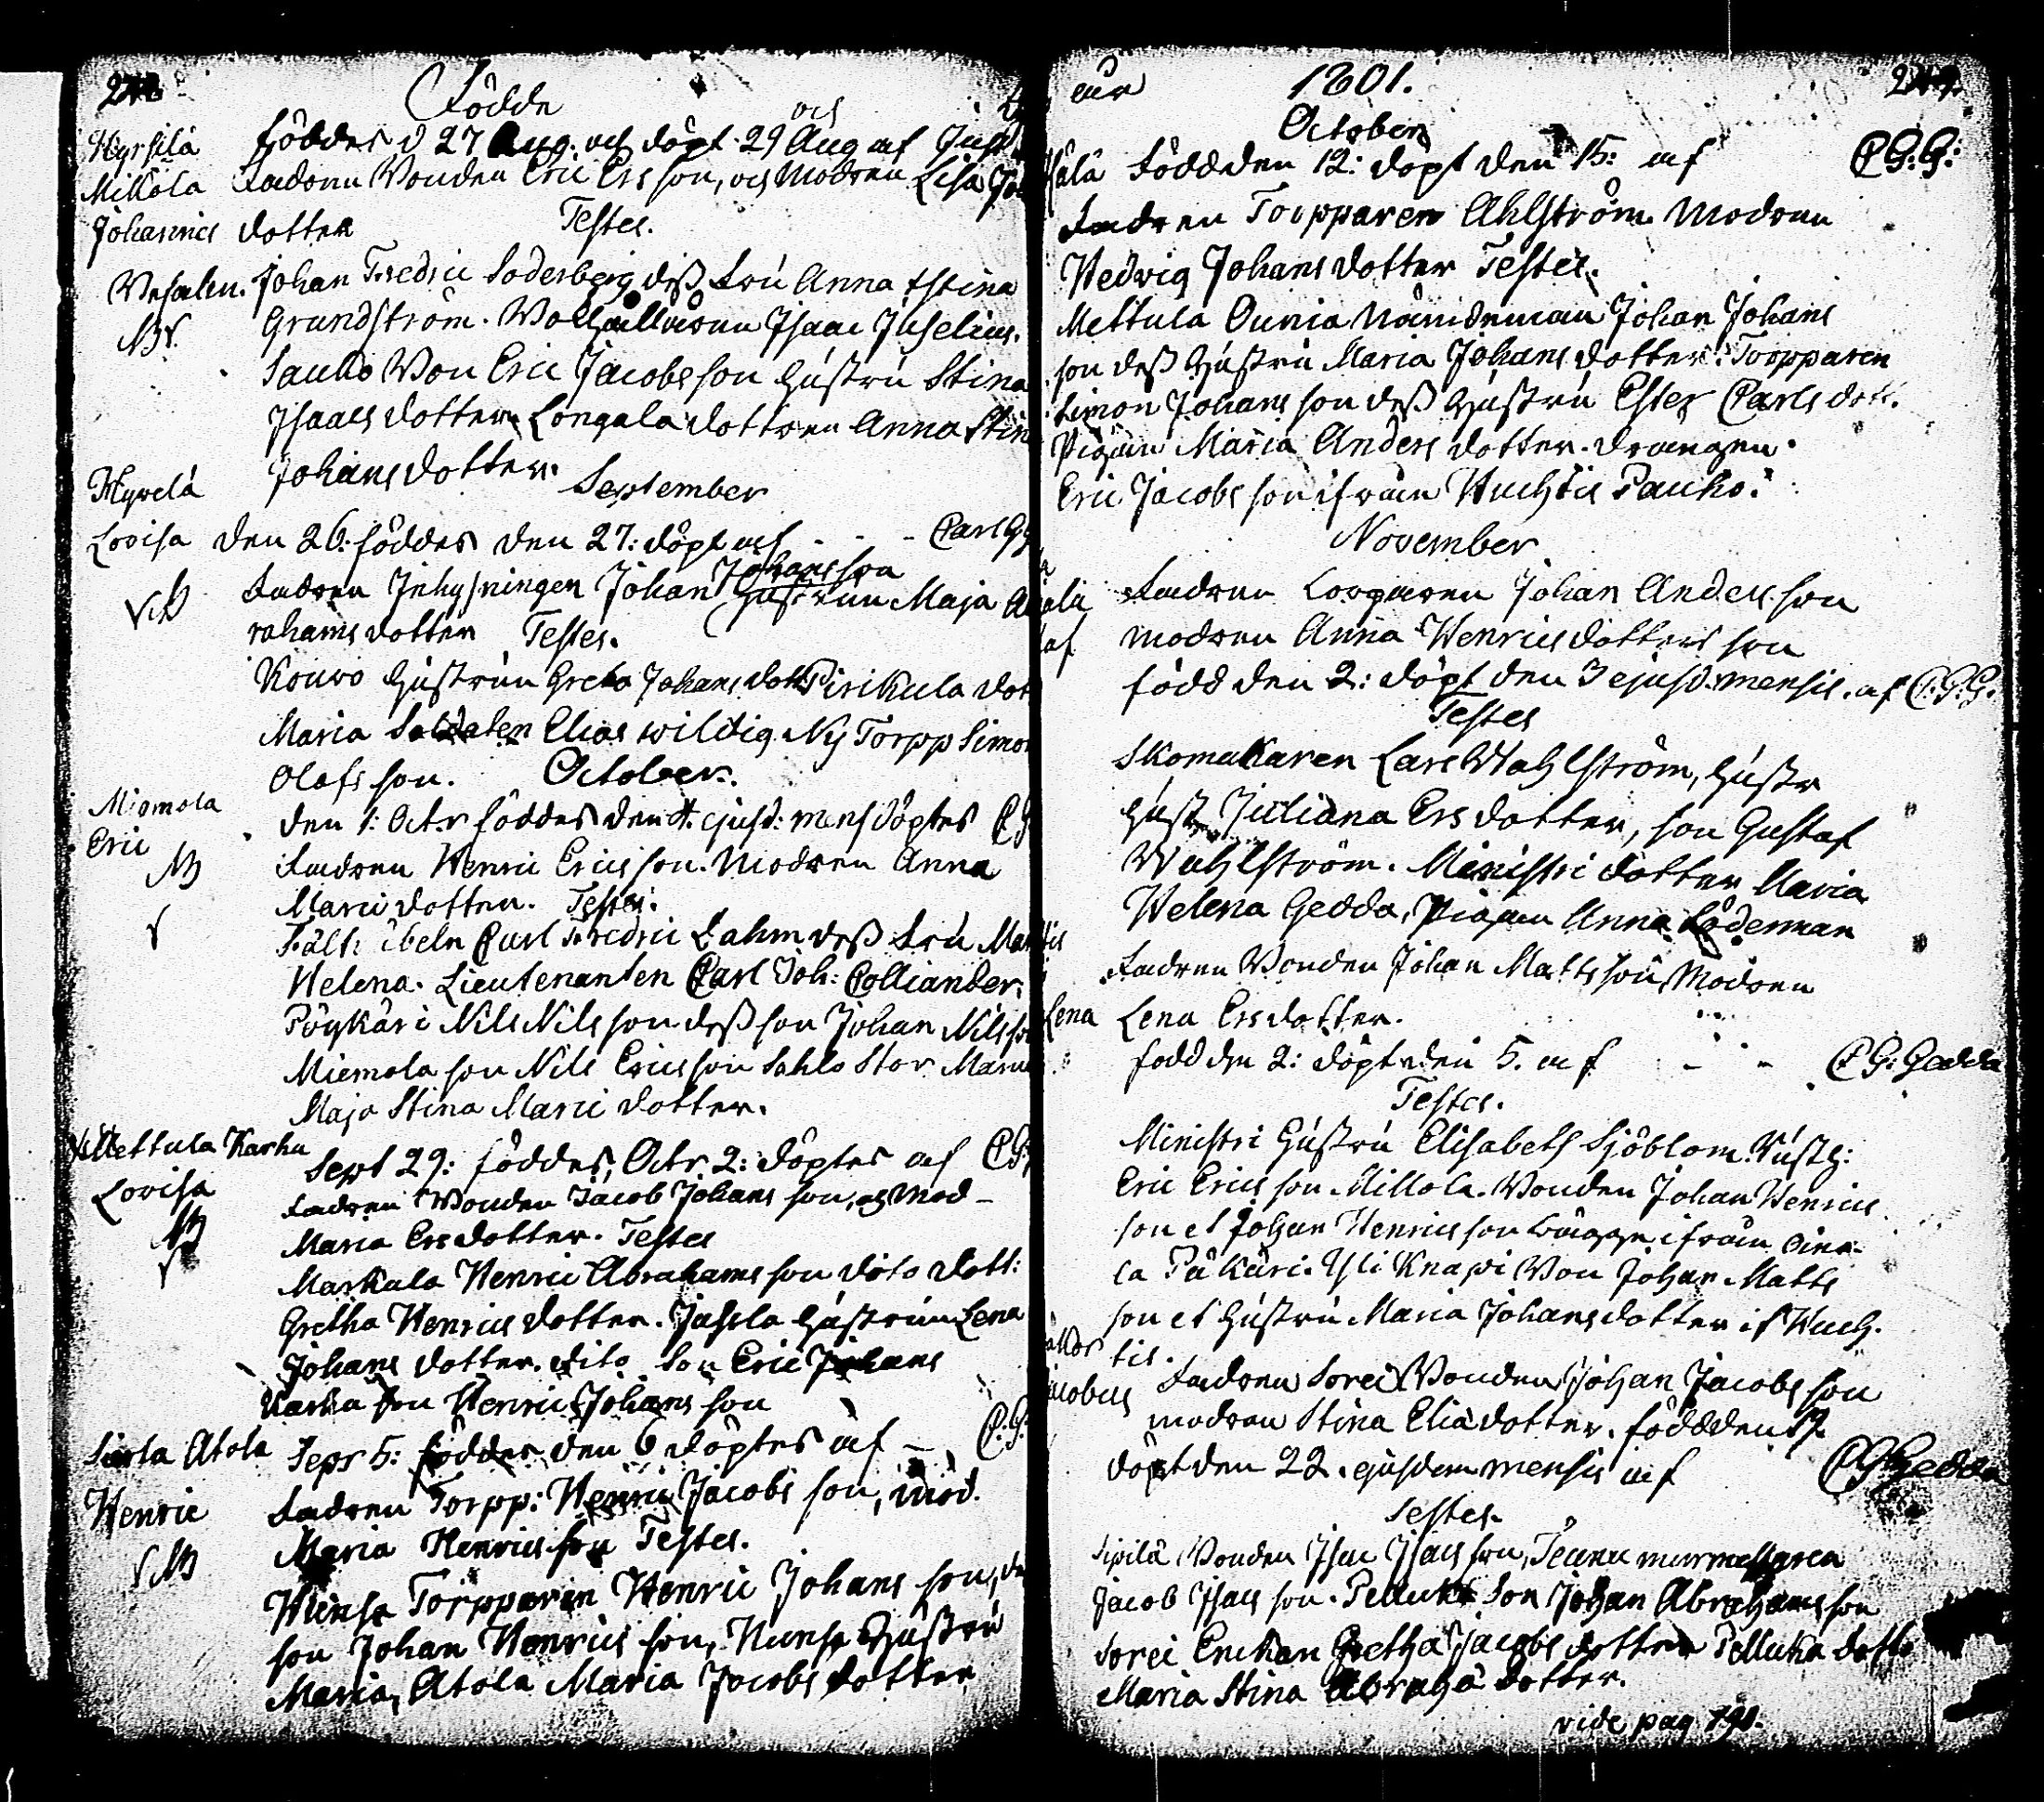 Födde
och
Hyrsilä föddes d 27 Aug. och döpt 29 Aug af
Millola Fadren Bonden Eric Ersson, och Modren Lisa
Johannes dotter Testes.
Johan Fredric Söderberg dess Fru Anna Stina
Grundström. Isaac Juselius.
Sauko Bon Eric Jacobsson hustru Stina
Isaacs dotter Longala dottren Anna Stin
Johans dotter.
September
Hyvelä
Lovisa den 26: föddes den 27: döpt af - - Carl
Johansson
Fadren Inhysningen Johan hustrun Maja
rahams dotter Testes.
Kouvo hustrun Greta Johans dott Pirikula dot
Maria Soldaten Elias wildig Ny Torpp Simon
Olofs son. October.
Miemola
Eric den 1: Octr föddes den 4. ejusd: mens döptes
Fadren Henric Ericsson. Modren Anna
Marci dotter. Testes.
Carl Fredric Lahm dess Fru
Helena. Lieutenanten Carl Joh: Colliander.
Pöykäri Nils Nilsson dess son Johan Nilsso
Miemola son Nils Ericsson Sahlo Stor
Maja Stina Marci dotter.
Mettula Karhu
Lovisa Sept 29: föddes, Octr 2: döptes af
Fadren Bonden Jacob Johansson, och Mod-
Maria Ersdotter. Testes
Markula Henric Abrahamsson dito dott:
Gretha Henrics dotter. Jussila hustrun Lena
Johans dotter. dito Son Eric Johans
Karhu son Henric Johansson
Atola Sepr 5: föddes den 6 döptes af - C. G:
Henric Fadren Torpp: Henric Jacobs son, Mod.
Maria Henrics son Testes.
Torpparen Henric Johans son,
son Johan Henrics son, hustru
Maria, Atola Maria Jacobs dotter
1801.
October
Född den 12: döpt den 15: af C G: G:
Fadren Torpparen Ahlström Modren
Hedvig Johans dotter Testes.
Mettula Ounia Nämndeman Johan Johans
son dess hustru Maria Johans dotter. Torpparen
Simon Johans son dess hustru Ester Carls dott.
Pigan Maria Anders dotter. drängen
Eric Jacobsson ifrån Huchtis Pauko.
November
Fadren Johan Anders son
modren Anna Henrics dotters son
född den 2: döpt den 3 ejusd. mensis. af C. G. G.
Testes
Skomakaren Lars Wahlström, hustr
hust Juliana Ersdotter, son Gustaf
Wahlström. Ministri dotter Maria
Helena Gedda, Pigan Anna Söderman
Fadren Bonden Johan Matts son, Modren
Lena Lena Ersdotter.
född den 2: döpt den 5. af - - C G: Gedda
Testes.
Ministri hustru Elisabeth Sjöblom.
Eric Ericsson Millola. Bonden Johan Henrics
son et Johan Henrics son bägge ifrån Oina-
la Päkäri. Yli Knapi Bon Johan Matts
son et hustru Maria Johans dotter if Huch-
tis.
Jacobus Fadren Sorei Bonden Johan Jacobs son
modren Stina Elia dotter. född den
döpt den 22. ejusdem mensis af C G Gedda
Testes.
Sipilä Bonden Isac Isacs son,
Jacob Isacs son. Pelluka Son Johan Abrahams son
Sorei Enckan Gretha Jacobs dotter Pelluka dotter
Maria Stina Abraha dotter.
vide pag 191.